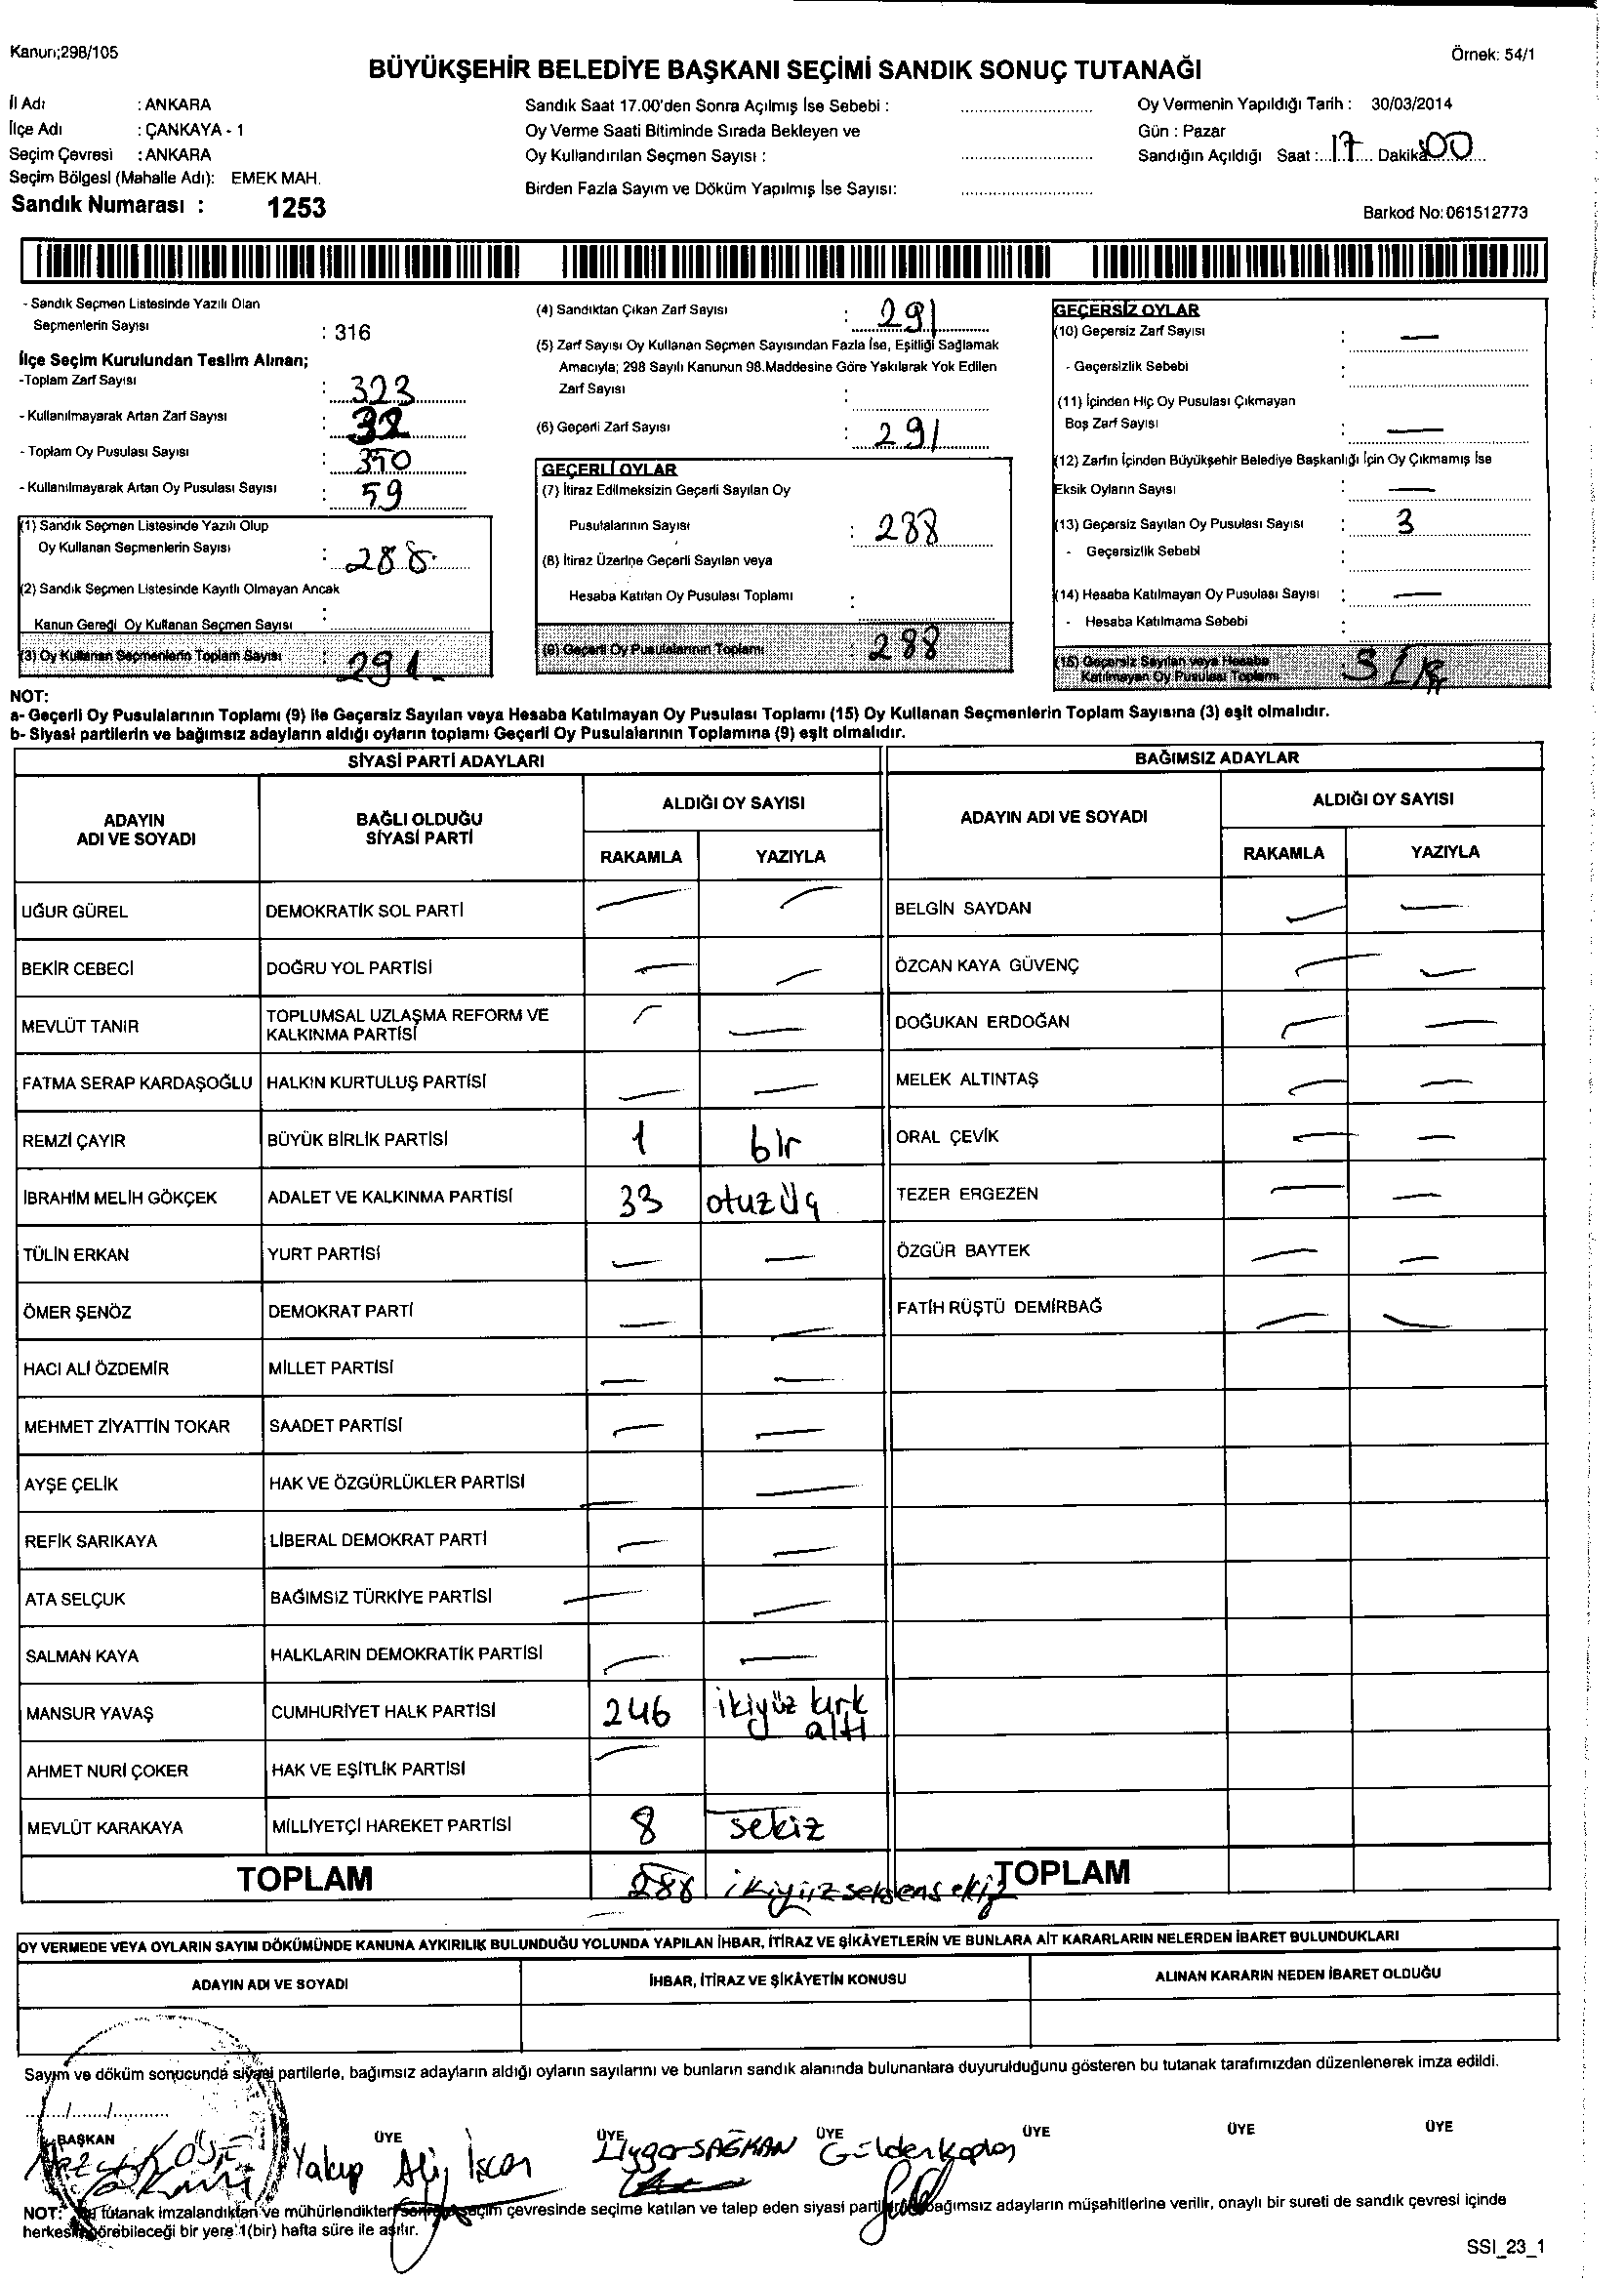 Kanun;298/105
Örnek: 54/1
BÜYÜKŞEHİR BELEDİYE BAŞKANI SEÇİMİ SANDIK SONUÇ TUTANAĞI
İl Adı : ANKARA
İlçe Adı : ÇANKAYA - 1
Seçim Çevresi : ANKARA
Seçim Bölgesi (Mahalle Adı): EMEK MAH.
Sandık Numarası : 1253
Sandık Saat 17.00'den Sonra Açılmış İse Sebebi :
Oy Verme Saati Bitiminde Sırada Bekleyen ve
Oy Kullandırılan Seçmen Sayısı :
Birden Fazla Sayım ve Döküm Yapılmış İse Sayısı:
Oy Vermenin Yapıldığı Tarih : 30/03/2014
Gün : Pazar
Sandığın Açıldığı Saat : 17 Dakika: 00
Barkod No: 061512773
- Sandık Seçmen Listesinde Yazılı Olan
Seçmenlerin Sayısı : 316
İlçe Seçim Kurulundan Teslim Alınan;
-Toplam Zarf Sayısı : 323
- Kullanılmayarak Artan Zarf Sayısı : 32
- Toplam Oy Pusulası Sayısı : 350
- Kullanılmayarak Artan Oy Pusulası Sayısı : 59
(1) Sandık Seçmen Listesinde Yazılı Olup
Oy Kullanan Seçmenlerin Sayısı : 288
(2) Sandık Seçmen Listesinde Kayıtlı Olmayan Ancak
Kanun Gereği Oy Kullanan Seçmen Sayısı :
(3) Oy Kullanan Seçmenlerin Toplam Sayısı : 291
(4) Sandıktan Çıkan Zarf Sayısı : 291
(5) Zarf Sayısı Oy Kullanan Seçmen Sayısından Fazla İse, Eşitliği Sağlamak
Amacıyla; 298 Sayılı Kanunun 98.Maddesine Göre Yakılarak Yok Edilen
Zarf Sayısı :
(6) Geçerli Zarf Sayısı : 291
GEÇERLİ OYLAR
(7) İtiraz Edilmeksizin Geçerli Sayılan Oy
Pusulalarının Sayısı : 288
(8) İtiraz Üzerine Geçerli Sayılan veya
Hesaba Katılan Oy Pusulası Toplamı :
(9) Geçerli Oy Pusulalarının Toplamı : 288
GEÇERSİZ OYLAR
(10) Geçersiz Zarf Sayısı : —
- Geçersizlik Sebebi :
(11) İçinden Hiç Oy Pusulası Çıkmayan
Boş Zarf Sayısı : —
(12) Zarfın İçinden Büyükşehir Belediye Başkanlığı İçin Oy Çıkmamış İse
Eksik Oyların Sayısı : —
(13) Geçersiz Sayılan Oy Pusulası Sayısı : 3
- Geçersizlik Sebebi :
(14) Hesaba Katılmayan Oy Pusulası Sayısı : —
- Hesaba Katılmama Sebebi :
(15) Geçersiz Sayılan veya Hesaba
Katılmayan Oy Pusulası Toplamı :
NOT:
a- Geçerli Oy Pusulalarının Toplamı (9) ile Geçersiz Sayılan veya Hesaba Katılmayan Oy Pusulası Toplamı (15) Oy Kullanan Seçmenlerin Toplam Sayısına (3) eşit olmalıdır.
b- Siyasi partilerin ve bağımsız adayların aldığı oyların toplamı Geçerli Oy Pusulalarının Toplamına (9) eşit olmalıdır.
SİYASİ PARTİ ADAYLARI
ADAYIN ADI VE SOYADI BAĞLI OLDUĞU SİYASİ PARTİ ALDIĞI OY SAYISI
RAKAMLA YAZIYLA
UĞUR GÜREL DEMOKRATİK SOL PARTİ — —
BEKİR CEBECİ DOĞRU YOL PARTİSİ — —
MEVLÜT TANIR TOPLUMSAL UZLAŞMA REFORM VE KALKINMA PARTİSİ — —
FATMA SERAP KARDAŞOĞLU HALKIN KURTULUŞ PARTİSİ — —
REMZİ ÇAYIR BÜYÜK BİRLİK PARTİSİ 1 bir
İBRAHİM MELİH GÖKÇEK ADALET VE KALKINMA PARTİSİ 33 otuzüç
TÜLİN ERKAN YURT PARTİSİ — —
ÖMER ŞENÖZ DEMOKRAT PARTİ — —
HACI ALİ ÖZDEMİR MİLLET PARTİSİ — —
MEHMET ZİYATTİN TOKAR SAADET PARTİSİ — —
AYŞE ÇELİK HAK VE ÖZGÜRLÜKLER PARTİSİ — —
REFİK SARIKAYA LİBERAL DEMOKRAT PARTİ — —
ATA SELÇUK BAĞIMSIZ TÜRKİYE PARTİSİ — —
SALMAN KAYA HALKLARIN DEMOKRATİK PARTİSİ — —
MANSUR YAVAŞ CUMHURİYET HALK PARTİSİ 246 ikiyüz kırk altı
AHMET NURİ ÇOKER HAK VE EŞİTLİK PARTİSİ — —
MEVLÜT KARAKAYA MİLLİYETÇİ HAREKET PARTİSİ 8 sekiz
TOPLAM 288 ikiyüzseksensekiz
BAĞIMSIZ ADAYLAR
ADAYIN ADI VE SOYADI ALDIĞI OY SAYISI
RAKAMLA YAZIYLA
BELGİN SAYDAN — —
ÖZCAN KAYA GÜVENÇ — —
DOĞUKAN ERDOĞAN — —
MELEK ALTINTAŞ — —
ORAL ÇEVİK — —
TEZER ERGEZEN — —
ÖZGÜR BAYTEK — —
FATİH RÜŞTÜ DEMİRBAĞ — —
TOPLAM
OY VERMEDE VEYA OYLARIN SAYIM DÖKÜMÜNDE KANUNA AYKIRILIK BULUNDUĞU YOLUNDA YAPILAN İHBAR, İTİRAZ VE ŞİKÂYETLERİN VE BUNLARA AİT KARARLARIN NELERDEN İBARET BULUNDUKLARI
ADAYIN ADI VE SOYADI İHBAR, İTİRAZ VE ŞİKÂYETİN KONUSU ALINAN KARARIN NEDEN İBARET OLDUĞU
Sayım ve döküm sonucunda siyasi partilerle, bağımsız adayların aldığı oyların sayılarını ve bunların sandık alanında bulunanlara duyurulduğunu gösteren bu tutanak tarafımızdan düzenlenerek imza edildi.
....../....../...........
BAŞKAN ÜYE ÜYE ÜYE ÜYE ÜYE ÜYE
KÖSE Yakup Ali İscan Uygar SAĞKAN Gülden Kaplan
NOT: tutanak imzalandıktan ve mühürlendikten sonra seçim çevresinde seçime katılan ve talep eden siyasi parti bağımsız adayların müşahitlerine verilir, onaylı bir sureti de sandık çevresi içinde
herkesin görebileceği bir yere 1(bir) hafta süre ile asılır.
SSI_23_1